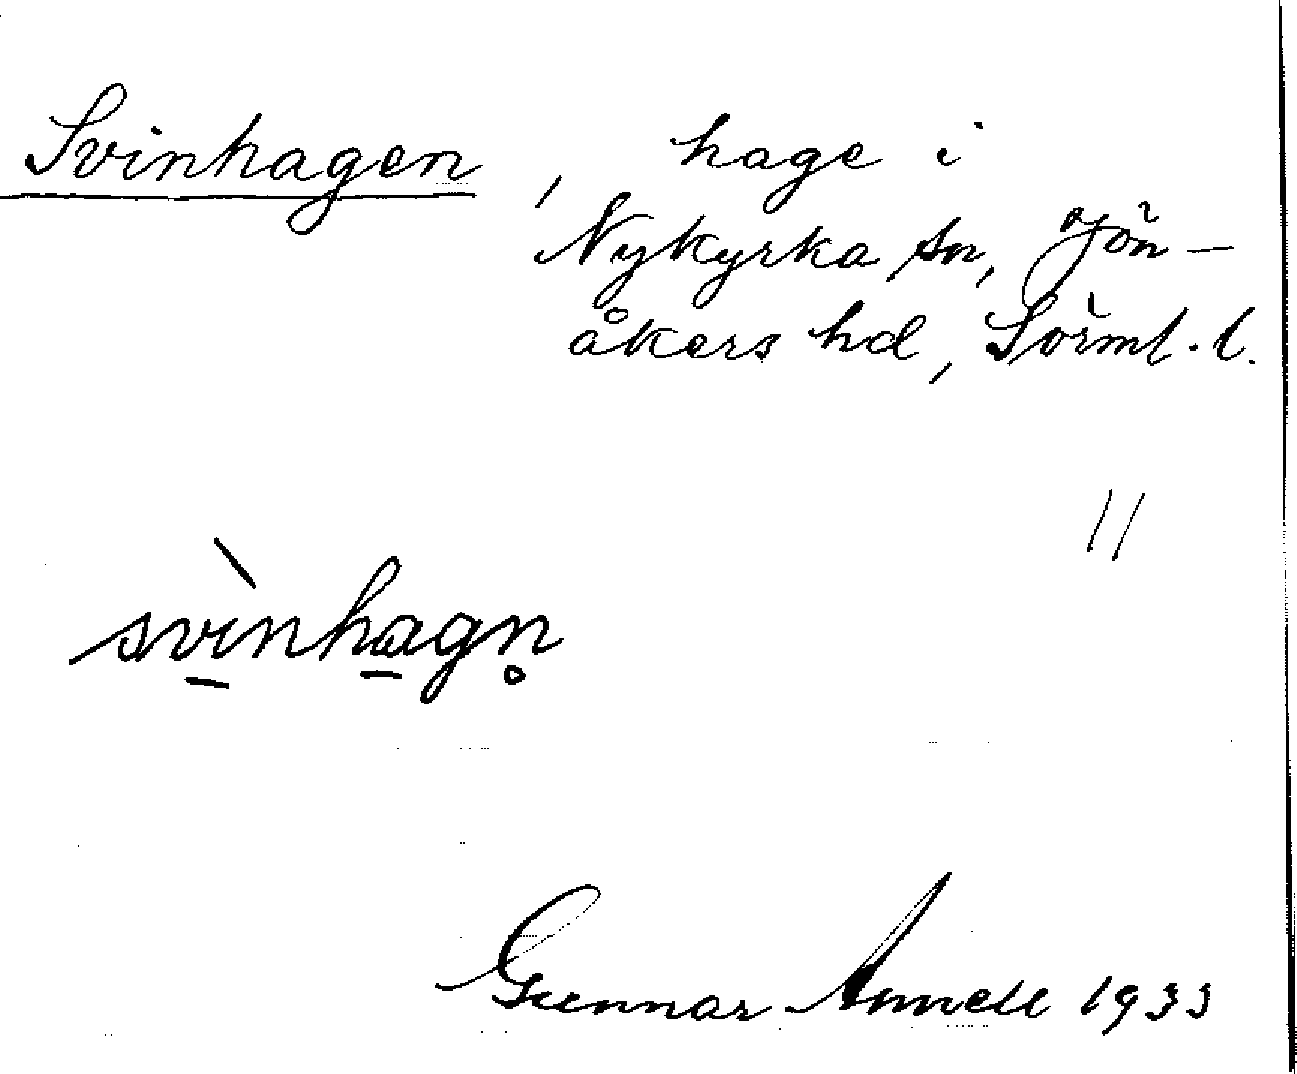 Svinhagen, hage i
Nykyrka sn, Jön-
åkers hd, Sörml. l.
//
svì̠nha̠gn̥
Gunnar Annell 1933